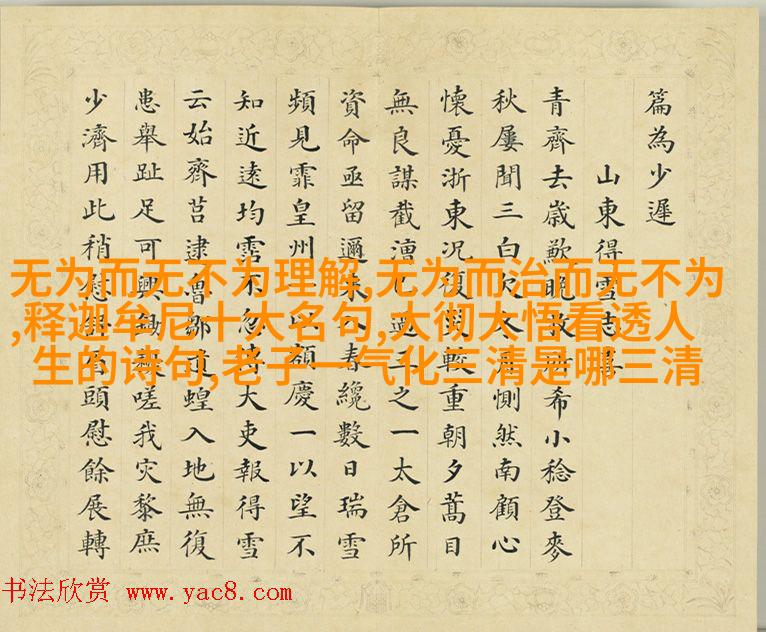 篇為少遲
山東得雪志喜
青齊去歲歉晚希小稔登麥
秋屢聞三白欠冬惻然南顧心
懷憂浙東況復災較重朝夕蒿目
無良謀截漕已過三之一太倉所
資命亟留邇來入春纔數日瑞雪
頻見霏皇州一以額慶一以望不
知近遠均霑不忽接大吏報得雪
云始齊莒逮魯鄒道蝗入地無復
患舉趾足可興鋤嗟我灾黎庶
少濟用此稍慰頭慰餘展轉
无为而无不为理解,无为而治而无不为
,释迦牟尼十大名句,大彻大悟看透人
生的诗句,老子一气化三清是哪三清
书法欣赏 www.yac8.com